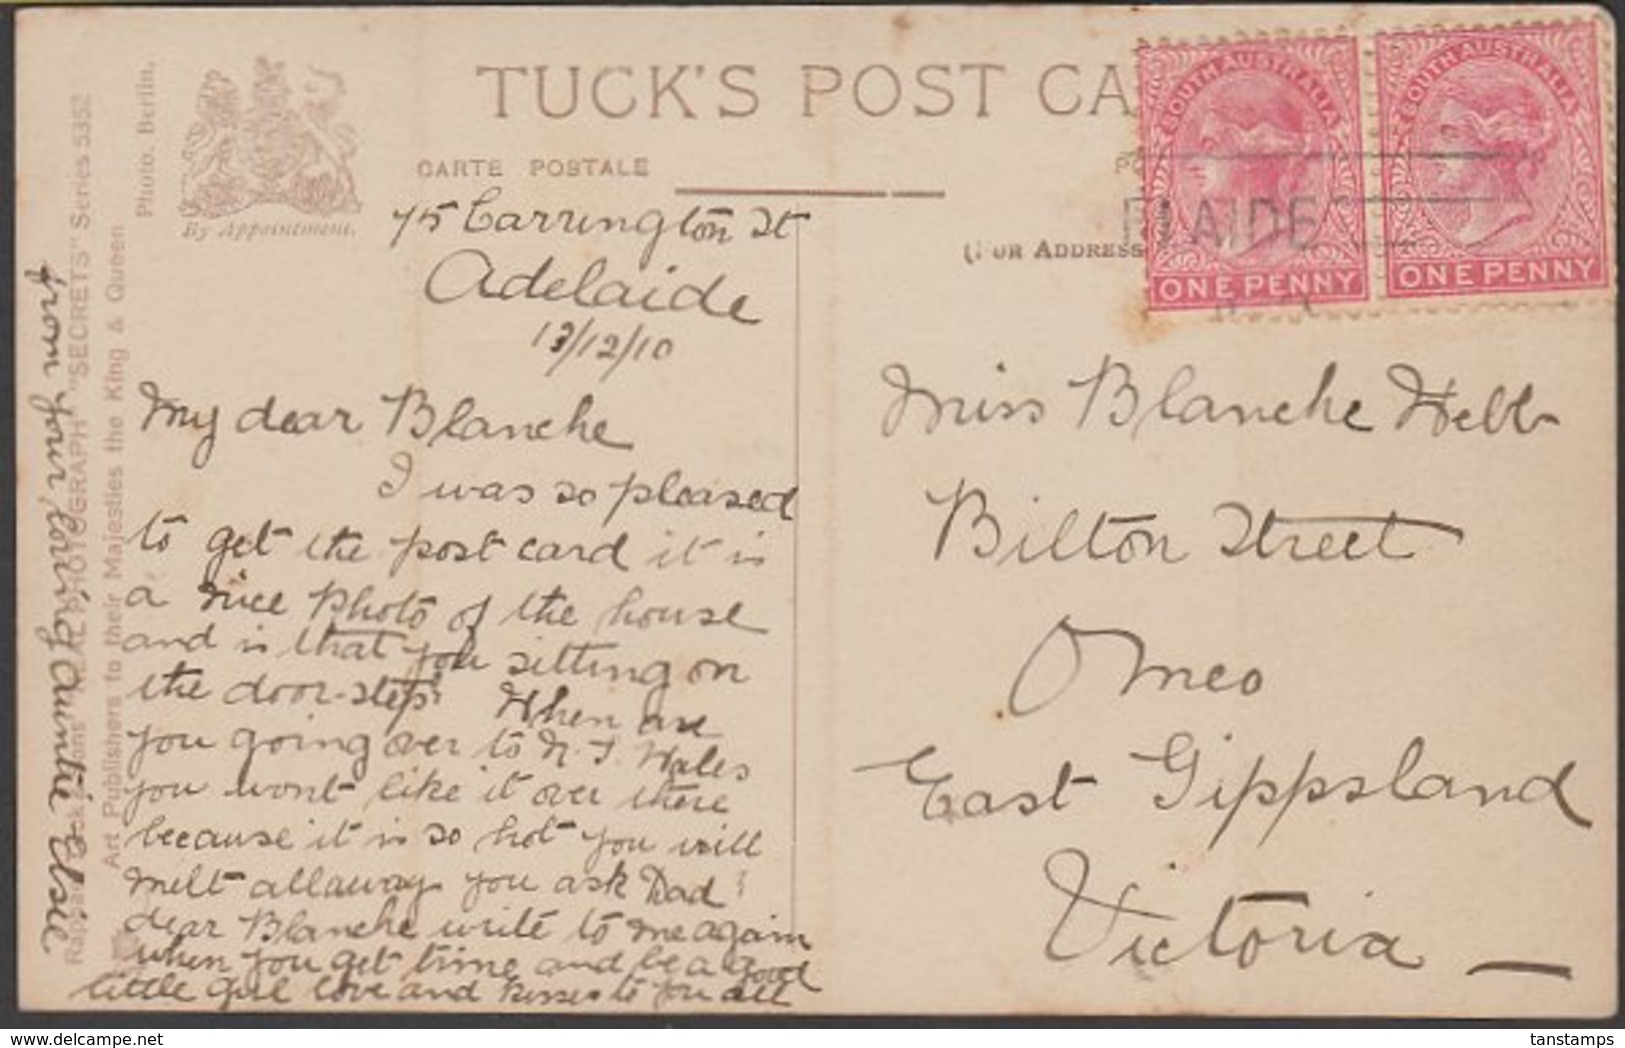 TUCK'S POST CA
CARTE POSTALE
(FOR ADDRESS
By Appointment.
Photo. Berlin.
"SECRETS" Series 5352
Art Publishers to their Majesties the King & Queen
SOUTH AUSTRALIA
ONE PENNY
SOUTH AUSTRALIA
ONE PENNY
ELAIDE
75 Carrington St
Adelaide
13/12/10
My dear Blanche
I was so pleased
to get the post card it is
a nice photo of the house
and is that you sitting on
the door-step? When are
you going over to N. S. Wales
you wont like it over there
because it is so hot you will
melt allaway you ask Dad
dear Blanche write to me again
when you get time and be a good
little girl love and kisses to you all
from your loving Auntie Elsie
Miss Blanche Webb
Bilton Street
Omeo
East Gippsland
Victoria
www.delcampe.net
tanstamps